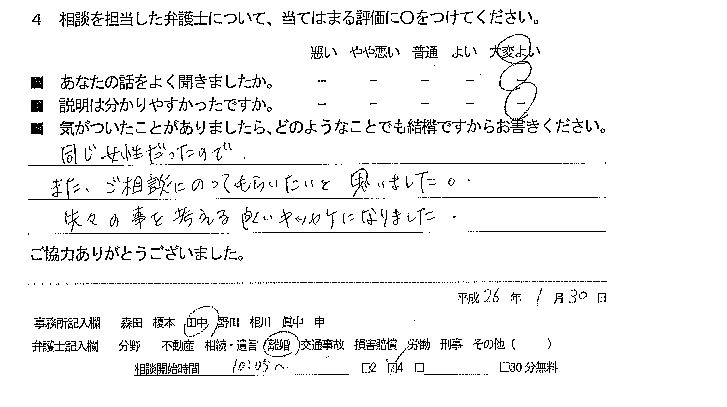 4 相談を担当した弁護士について、当てはまる評価に〇をつけてください。
悪い やや悪い 普通 よい 大変よい
■ あなたの話をよく聞きましたか。 － － － － －
■ 説明は分かりやすかったですか。 － － － － －
■ 気がついたことがありましたら、どのようなことでも結構ですからお書きください。
同じ女性だったので、
また、ご相談にのってもらいたいと思いました。
先々の事を考える良いキッカケになりました。
ご協力ありがとうございました。
平成 26 年 1 月 30 日
事務所記入欄 森田 榎本 田中 野田 相川 眞中 申
弁護士記入欄 分野 不動産 相続・遺言 離婚 交通事故 損害賠償 労働 刑事 その他( )
相談開始時間 10:05〜 □2 ☑4 □ □30分無料